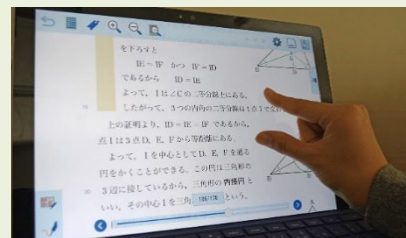 を下ろすと
IE=IF かつ IF=ID
であるから ID=IE
よって、Iは∠Cの二等分線上にある。
したがって、3つの内角の二等分線は1点Iで交わ
上の証明より、ID=IE=IFであるから、
点Iは3点D、E、Fから等距離にある。
よって、Iを中心としてD、E、Fを通る
円をかくことができる。この円は三角形の
3辺に接しているから、三角形の内接円と
いい、その中心Iを三角 という。
106/178